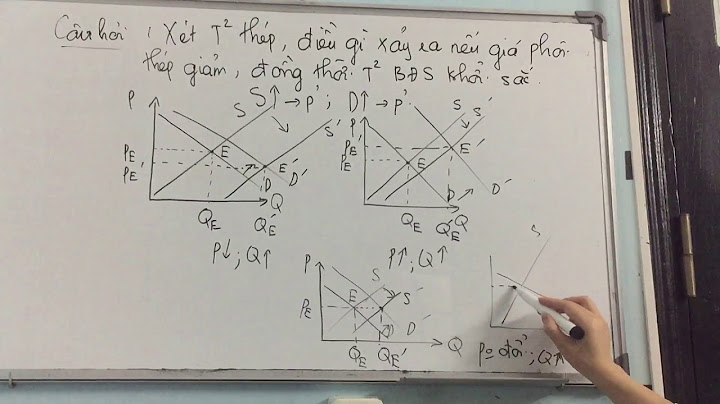 Câu hỏi : Xét T² thép, điều gì xảy ra nếu giá phôi
thép giảm, đồng thời T² BĐS khởi sắc.
S↑ → P' ; D↑ → P'
P S S'
PE E
PE' E'
D D'
QE QE' Q
P↓ ; Q↑
P S S'
PE' E'
PE E
D D'
QE QE' Q
P↑ ; Q↑
P S S'
PE E
D D'
QE QE' Q
S
P=đổi ; Q↑